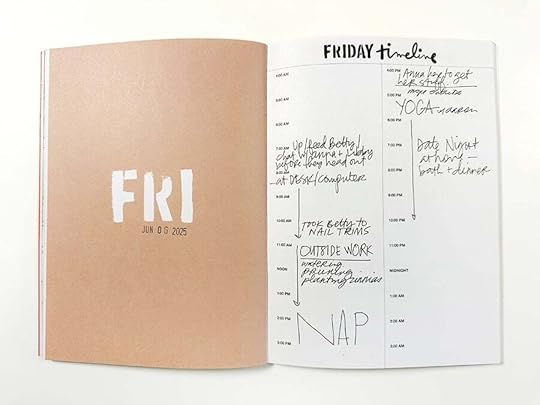 FRI
JUN 06 2025
FRIDAY timeline
4:00 AM
5:00 AM
6:00 AM
7:00 AM
up/feed Betty/
chat w/Anna +
before they head out
8:00 AM
at DESK/computer
9:00 AM
10:00 AM
TOOK Betty to
NAIL TRIMS
11:00 AM
OUTSIDE WORK
watering
NOON
pruning
planting zinnias
1:00 PM
2:00 PM
NAP
3:00 PM
4:00 PM
Anna here to get
her stuff
5:00 PM
more outside
YOGA
6:00 PM
7:00 PM
Date Night
at home —
bath + dinner
8:00 PM
9:00 PM
10:00 PM
11:00 PM
MIDNIGHT
1:00 AM
2:00 AM
3:00 AM